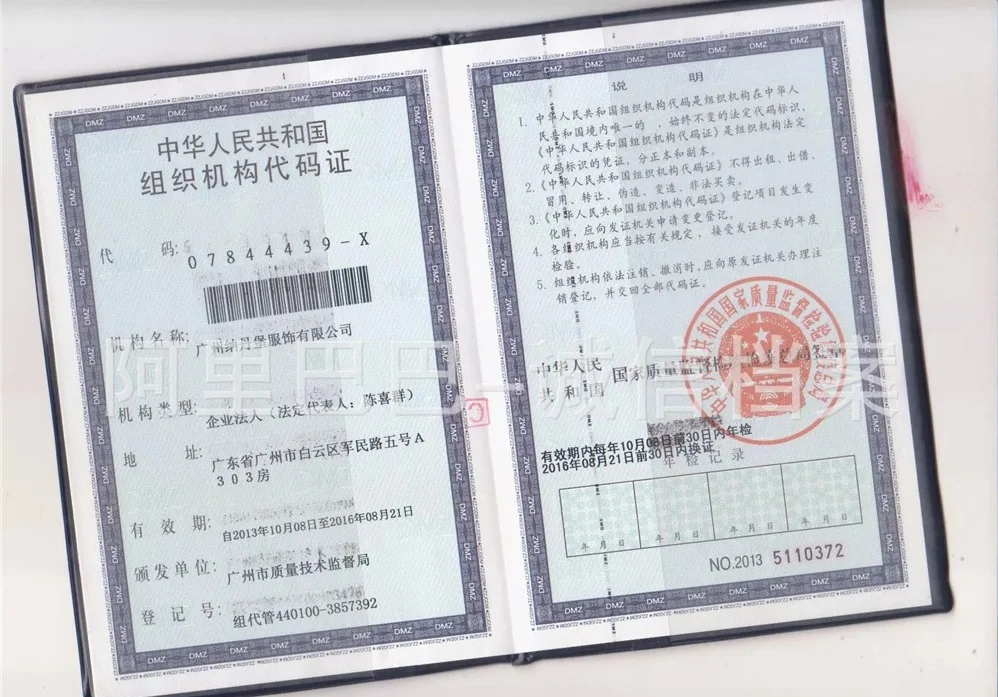 中华人民共和国
组织机构代码证
代 码:
07844439-X
机构名称:
广州纳丹堡服饰有限公司
机构类型:
企业法人（法定代表人：陈喜群）
地 址:
广东省广州市白云区军民路五号A
303房
有 效 期:
自2013年10月08日至2016年08月21日
颁发单位:
广州市质量技术监督局
登 记 号:
组代管440100-3857392
说 明
1. 中华人民共和国组织机构代码是组织机构在中华人
民共和国境内唯一的、始终不变的法定代码标识，
《中华人民共和国组织机构代码证》是组织机构法定
代码标识的凭证，分正本和副本。
2.《中华人民共和国组织机构代码证》不得出租、出借、
冒用、转让、伪造、变造、非法买卖。
3.《中华人民共和国组织机构代码证》登记项目发生变
化时，应向发证机关申请变更登记。
4. 各组织机构应当按有关规定，接受发证机关的年度
检验。
5. 组织机构依法注销、撤消时，应向原发证机关办理注
销登记，并交回全部代码证。
中华人民
共和国
国家质量监督检
有效期内每年10月08日前30日内年检
2016年08月21日前30日内换证
年检记录
年 月 日
年 月 日
年 月 日
年 月 日
NO.2013 5110372
阿里巴巴-诚信档案